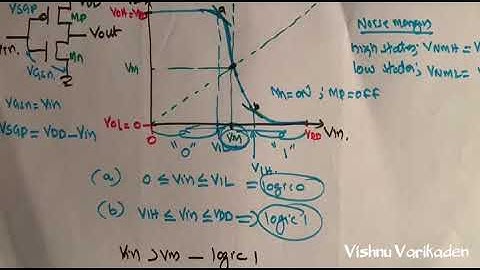 VSGP
VDD
MP
Vout
Vin
Mn
VGSn
VGSn = Vin
VSGP = VDD - Vin
VOH = VDD
Vm
VOL = 0
A
B
Mn = ON ; MP = OFF
0
VIL
Vm
VIH
VDD
Vin
"0"
"1"
Noise margins
high state; VNMH = V
low state; VNML = V
(a) 0 ≤ Vin ≤ VIL = logic 0
(b) VIH ≤ Vin ≤ VDD => logic '1'
Vin > Vm - logic 1
Vishnu Varikaden